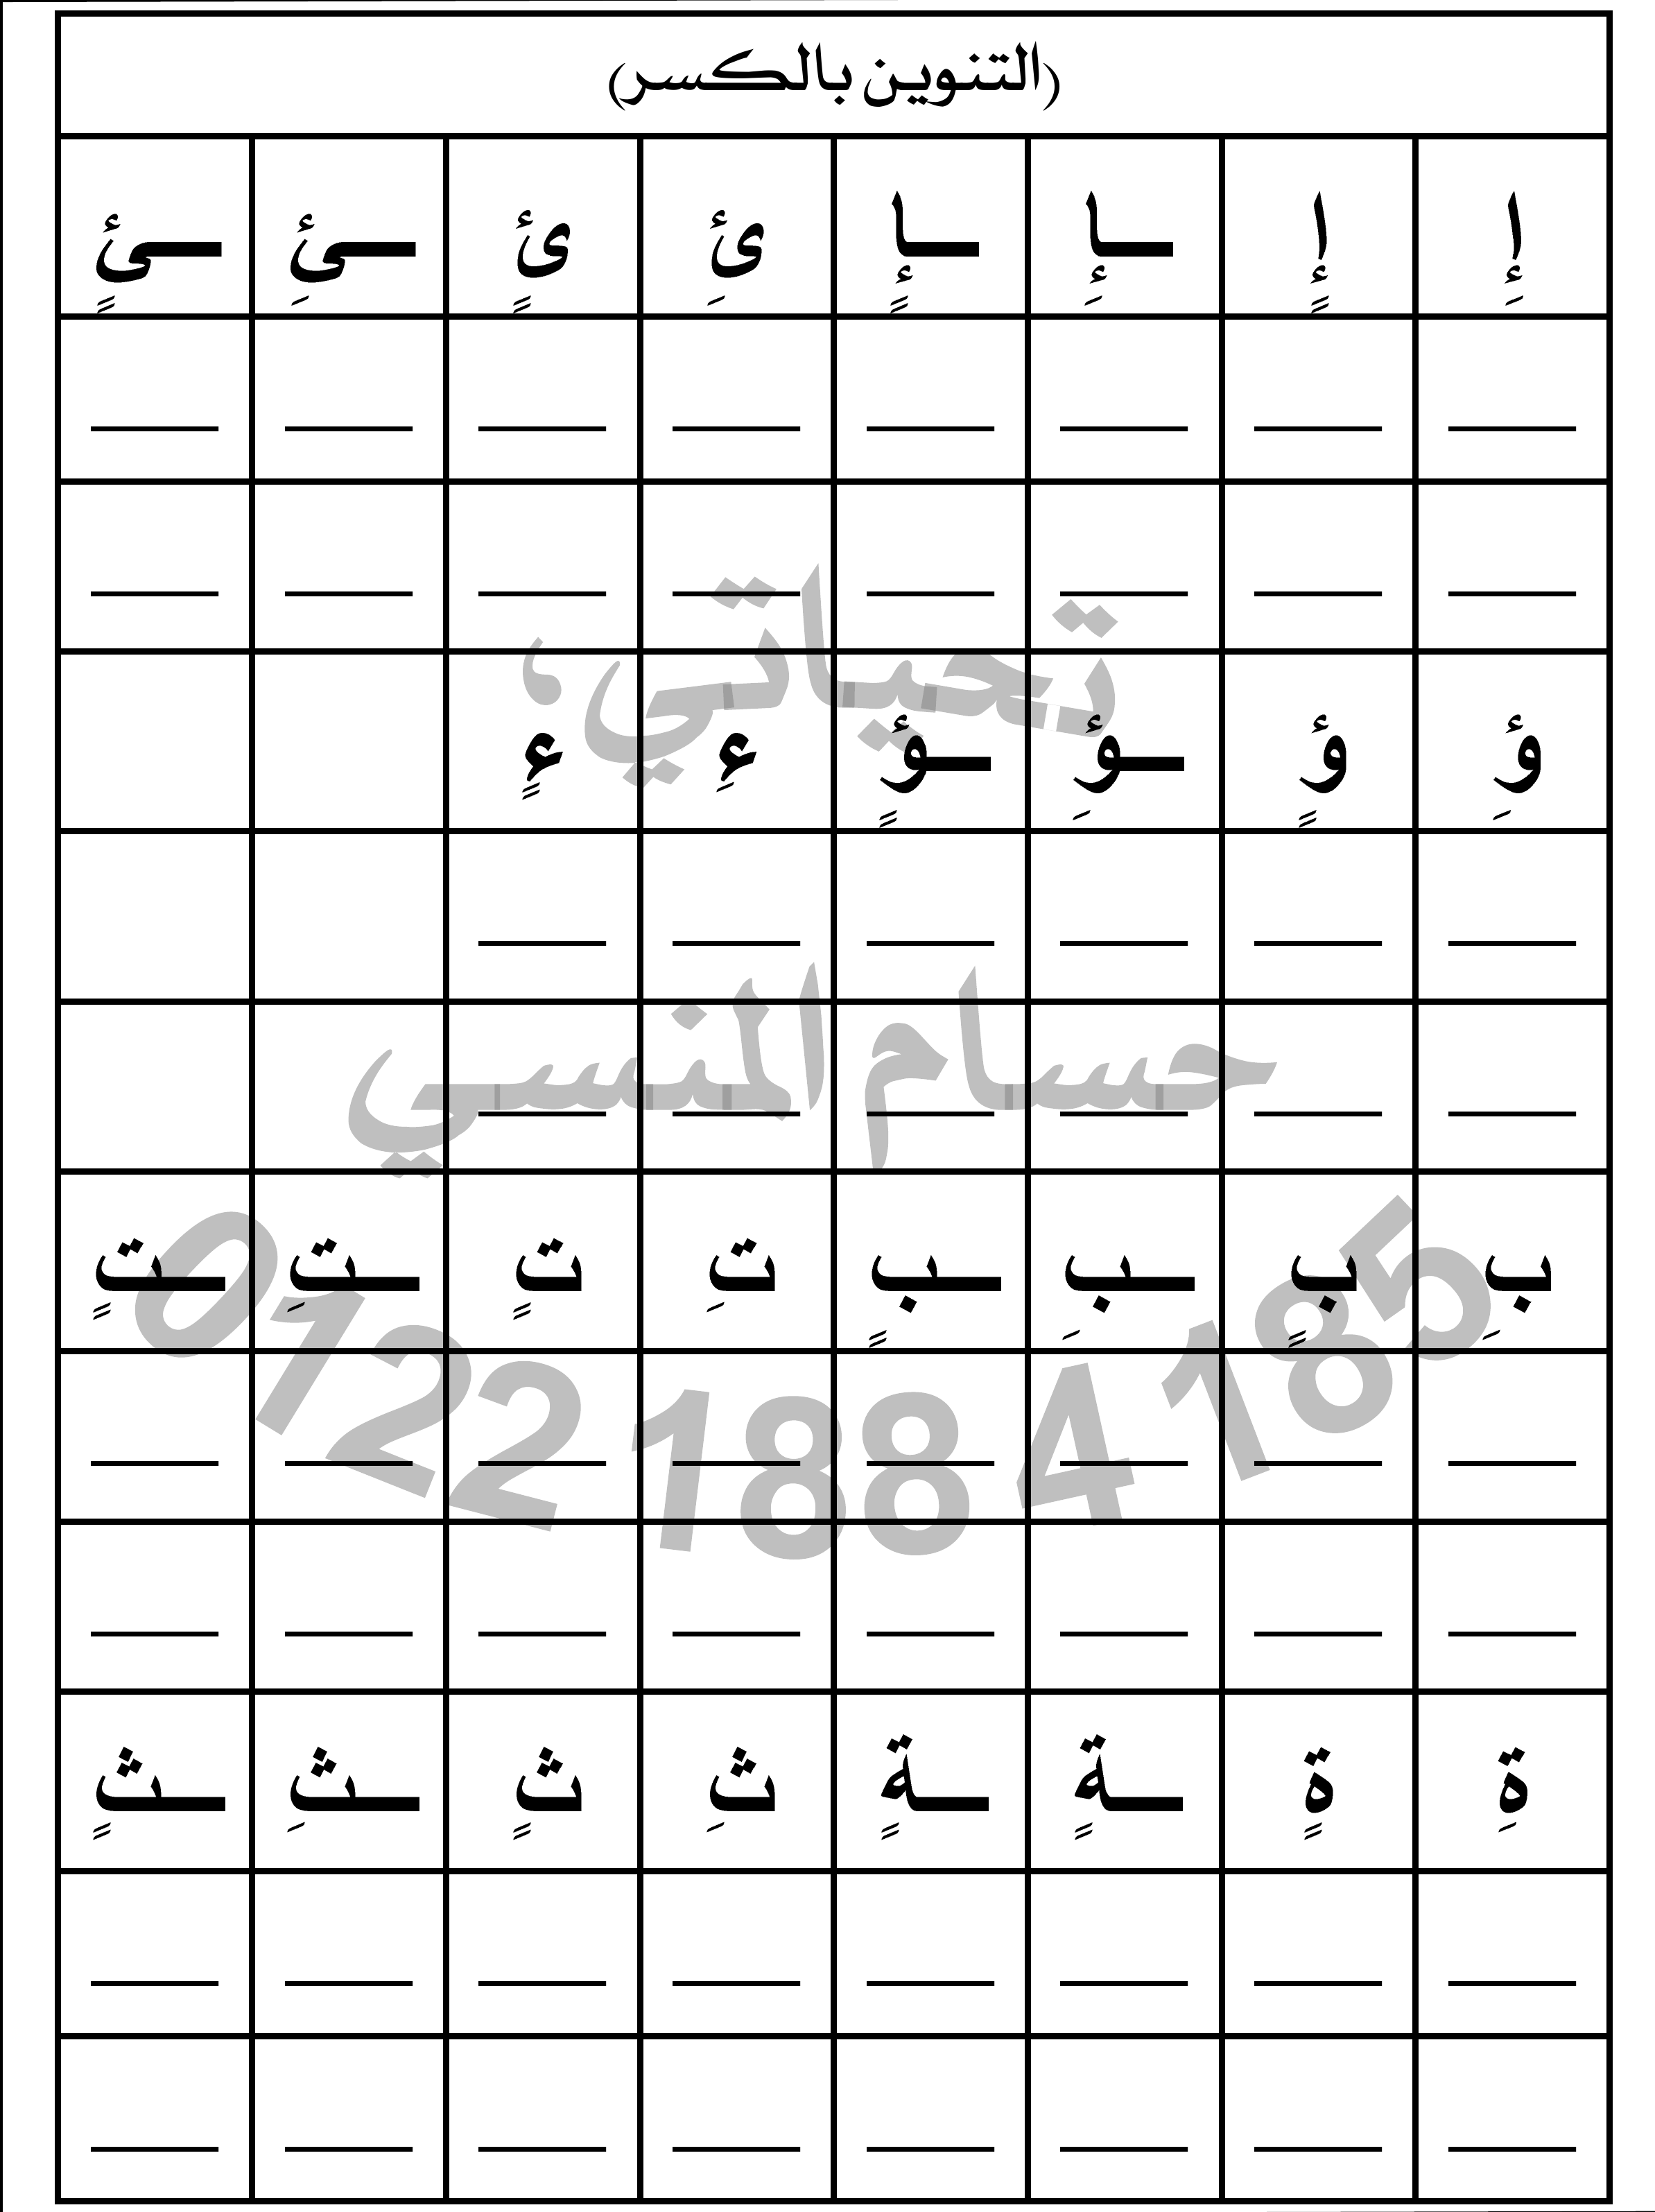 (التنوين بالكسر)
إِ إٍ ـإِ ـإٍ ئِ ئٍ ـئِ ـئٍ
ؤِ ؤٍ ـؤِ ـؤٍ ءِ ءٍ
بِ بٍ ـبِ ـبٍ تِ تٍ ـتِ ـتٍ
ةِ ةٍ ـةٍ ـةٍ ثِ ثٍ ـثِ ـثٍ
تحياتي،
حسام المنسي
0122 188 4 185